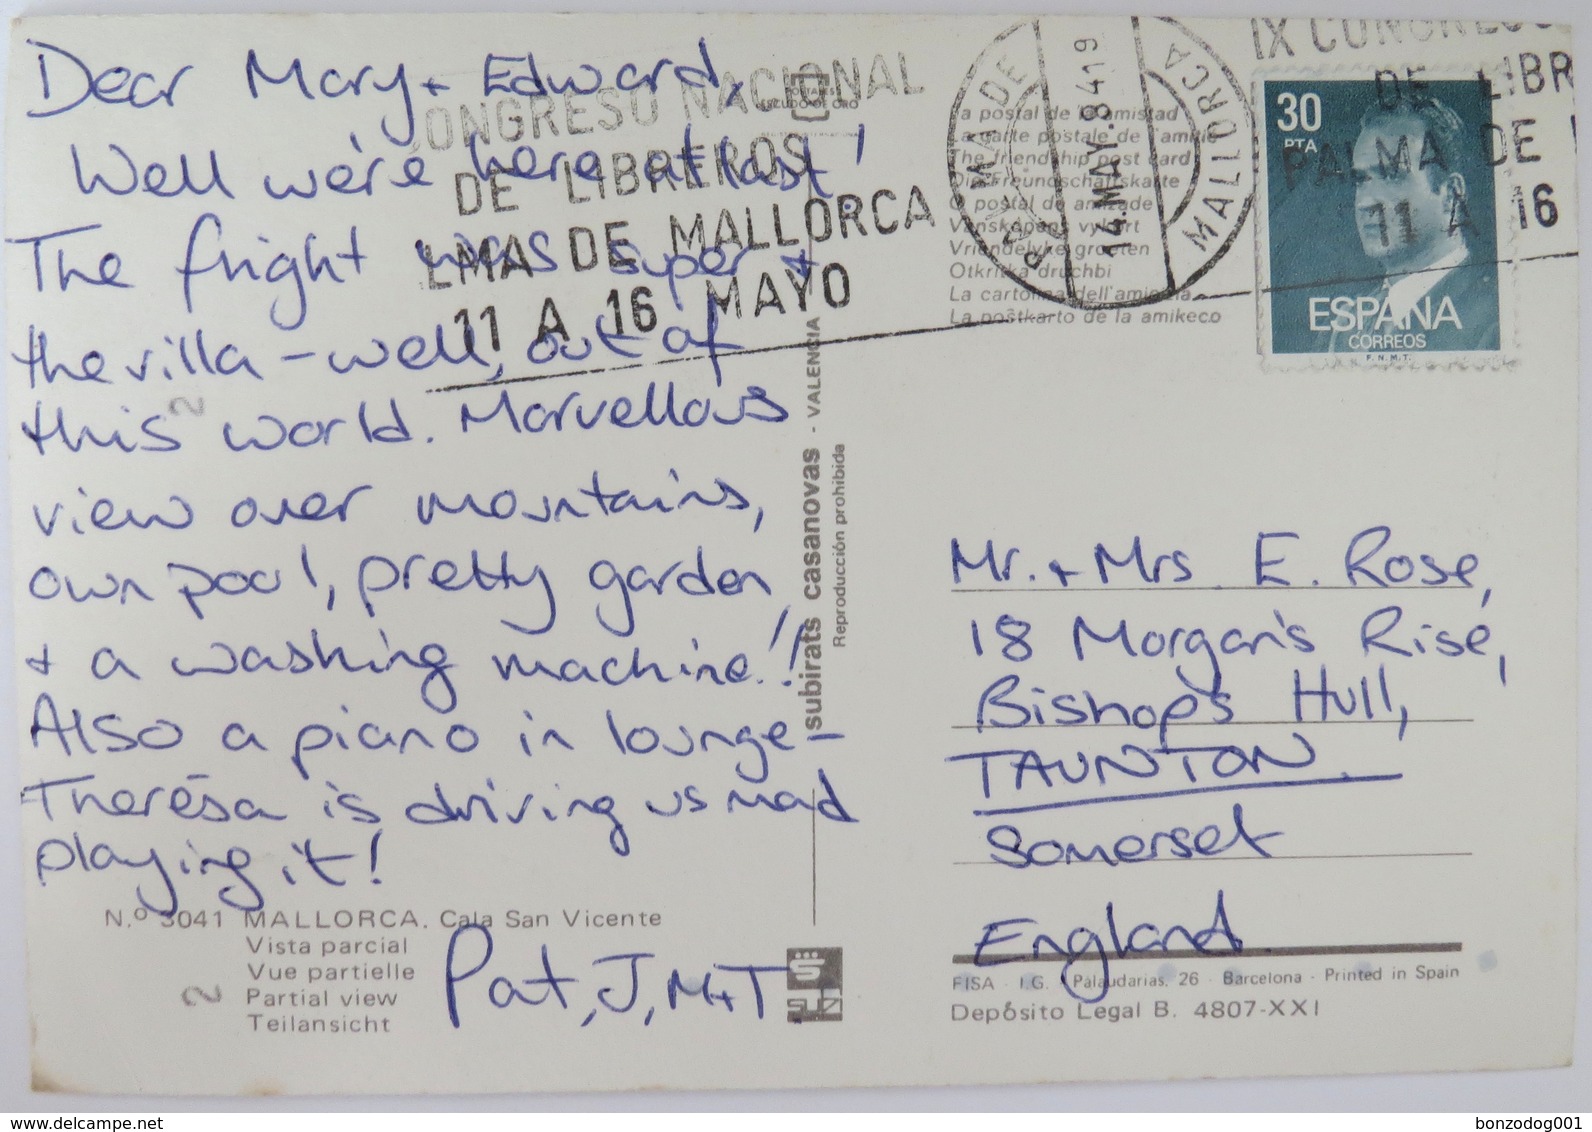 Dear Mary + Edward,
Well we're here at last!
The flight was super +
the villa – well, out of
this world. Marvellous
view over mountains,
own pool, pretty garden
+ a washing machine!!
Also a piano in lounge –
Theresa is driving us mad
playing it!
Pat, J, M + T.
Nº 3041 MALLORCA. Cala San Vicente
Vista parcial
Vue partielle
Partial view
Teilansicht
CONGRESO NACIONAL
DE LIBREROS
LMA DE MALLORCA
11 A 16 MAYO
subirats casanovas - VALENCIA
Reproducción prohibida
La postal de la amistad
La carte postale de l'amitié
The friendship post card
Die Freundschaftskarte
O postal de amizade
Vänskapens vykort
Vriendelyke groeten
Otkritka druchbi
La cartolina dell'amicizia
La postkarto de la amikeco
PALMA DE MALLORCA
14.MAY.84 19
IX CONGRESO
DE LIBR
PALMA DE
11 A 16
30
PTA
ESPAÑA
CORREOS
F.N.M.T.
Mr. + Mrs. E. Rose,
18 Morgan's Rise,
Bishop's Hull,
TAUNTON.
Somerset
England.
FISA - I.G. - Palaudarias, 26 - Barcelona - Printed in Spain
Depósito Legal B. 4807-XXI
delcampe.net
bonzodog001